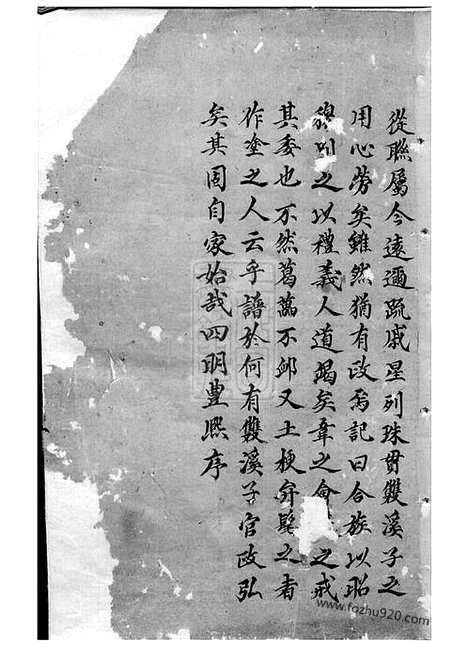 從聯屬今遠邇疏戚星列珠貫雙溪子之
用心勞矣雖然猶有政焉記曰合族以昭
穆別之以禮義人道竭矣韋之會之戒
其委也不然葛藟不邺又土梗弁髦之者
作塗之人云乎譜於何有雙溪子官政弘
矣其固自家始哉四明豐熙序
www.fozhu920.com